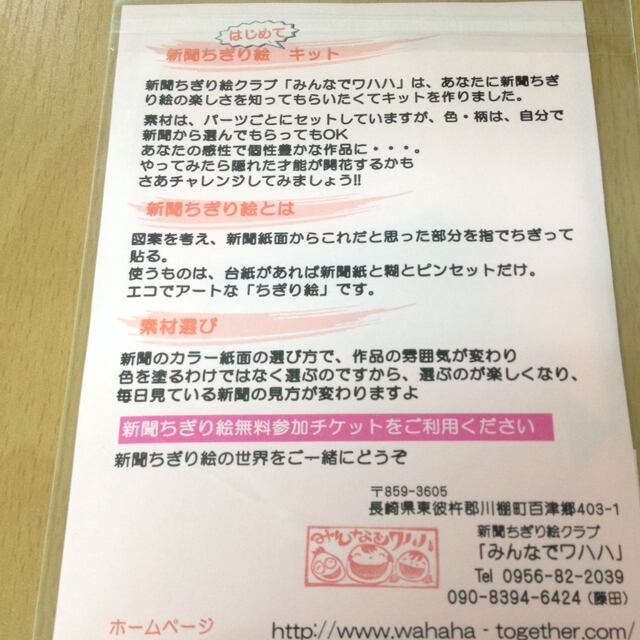 はじめて
新聞ちぎり絵 キット
新聞ちぎり絵クラブ「みんなでワハハ」は、あなたに新聞ちぎ
り絵の楽しさを知ってもらいたくてキットを作りました。
素材は、パーツごとにセットしていますが、色・柄は、自分で
新聞から選んでもらってもOK
あなたの感性で個性豊かな作品に・・・。
やってみたら隠れた才能が開花するかも
さあチャレンジしてみましょう!!
新聞ちぎり絵とは
図案を考え、新聞紙面からこれだと思った部分を指でちぎって
貼る。
使うものは、台紙があれば新聞紙と糊とピンセットだけ。
エコでアートな「ちぎり絵」です。
素材選び
新聞のカラー紙面の選び方で、作品の雰囲気が変わり
色を塗るわけではなく選ぶのですから、選ぶのが楽しくなり、
毎日見ている新聞の見方が変わりますよ
新聞ちぎり絵無料参加チケットをご利用ください
新聞ちぎり絵の世界をご一緒にどうぞ
〒859-3605
長崎県東彼杵郡川棚町百津郷403-1
みんなでワハハ
新聞ちぎり絵クラブ
「みんなでワハハ」
Tel 0956-82-2039
090-8394-6424(藤田)
ホームページ http://www.wahaha‐together.com/